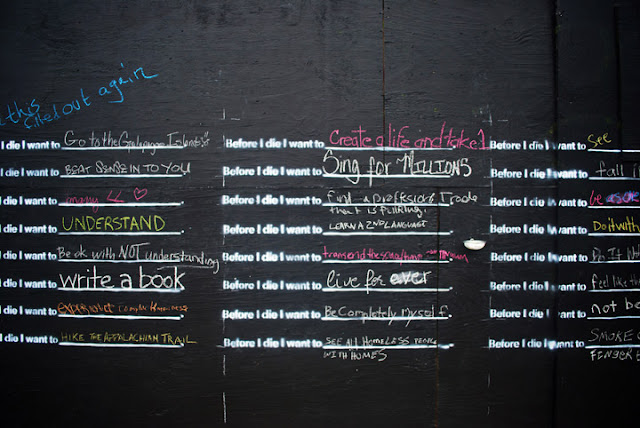 this
filled out again
I die I want to Go to the Galapagos Islands
I die I want to BEAT SENSE IN TO YOU
I die I want to marry
I die I want to UNDERSTAND
I die I want to Be ok with NOT understanding
I die I want to write a book
I die I want to experience complete Happiness
I die I want to HIKE THE APPALACHIAN TRAIL
Before I die I want to Create a life and take 1
Before I die I want to Sing for MILLIONS
Before I die I want to find a profession / trade
that is fulfilling.
Before I die I want to LEARN A 2ND LANGUAGE
Before I die I want to transcend the
Before I die I want to live for ever
Before I die I want to Be Completely Myself.
Before I die I want to SEE ALL HOMELESS PEOPLE
WITH HOMES
Before I die I want to see
Before I die I want to fall i
Before I die I want to be
Before I die I want to Do it with
Before I die I want to Do It
Before I die I want to feel like th
Before I die I want to not be
Before I die I want to SMOKE
FINGER